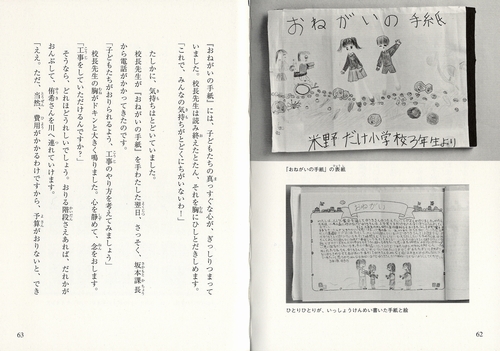 おねがいの手紙
米野だけ小学校3年生より
『おねがいの手紙』の表紙
おねがい
ひとりひとりが、いっしょうけんめい書いた手紙と絵
62
『おねがいの手紙』は、子どもたちの真っすぐな心が、ぎっしりつまって
いました。校長先生は読み終えたとたん、それを胸にひしとだきしめます。
「これで、みんなの気持ちがとどくにちがいないわ!」
たしかに、気持ちはとどいていました。
校長先生が『おねがいの手紙』を手わたした翌日、さっそく坂本課長
から電話がかかってきたのです。
「子どもたちがおりられるよう、工事のやり方を考えてみましょう」
校長先生の胸がドキンと大きく鳴りました。心を静めて、念をおします。
「工事をしていただけるんですか?」
そうなら、どれほどうれしいでしょう。おりる階段さえあれば、だれかが
おんぶして、侑希さんを川へ連れていけます。
「ええ。ただ、当然、費用がかかるわけですから、予算がおりないと、でき
63